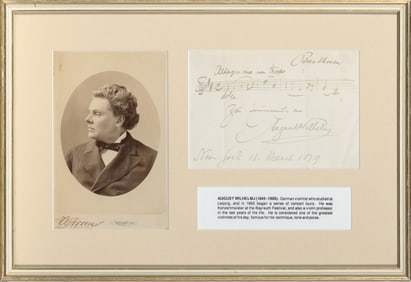 Beethoven
Allegro ma non troppo
dolce
Zur Erinnerung an
August Wilhelmj
New York 11. March 1879
Warren
AUGUST WILHELMJ (1845-1908). German violinist who studied at
Leipzig, and in 1865 began a series of concert tours. He was
Konzertmeister at the Bayreuth Festival, and also a violin professor
in the last years of his life. He is considered one of the greatest
violinists of his day, famous for his technique, tone and poise.